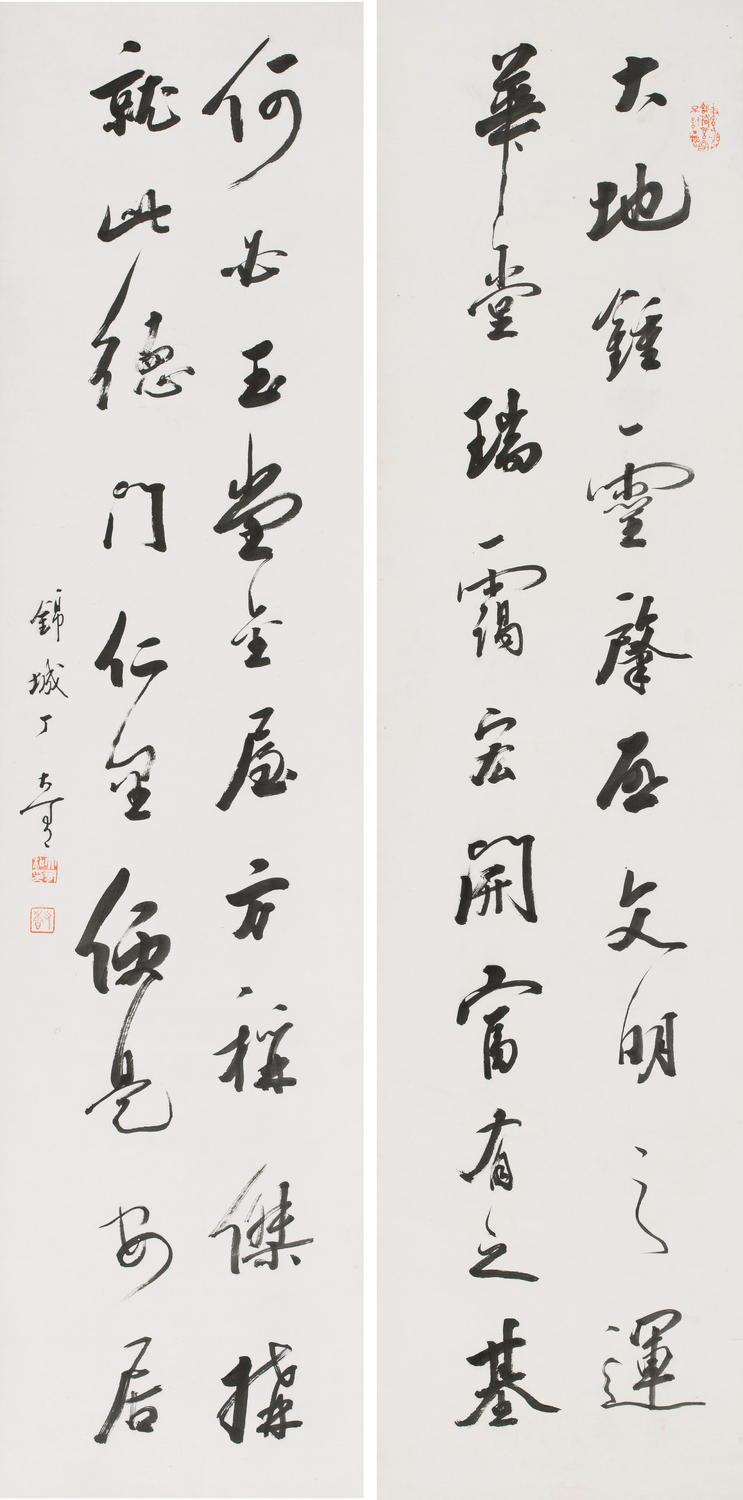 大地鍾靈肇启文明之運
華堂瑞靄宏開富有之基
何必玉堂金屋方稱傑搆
就此德門仁里便是安居
錦城丁大青